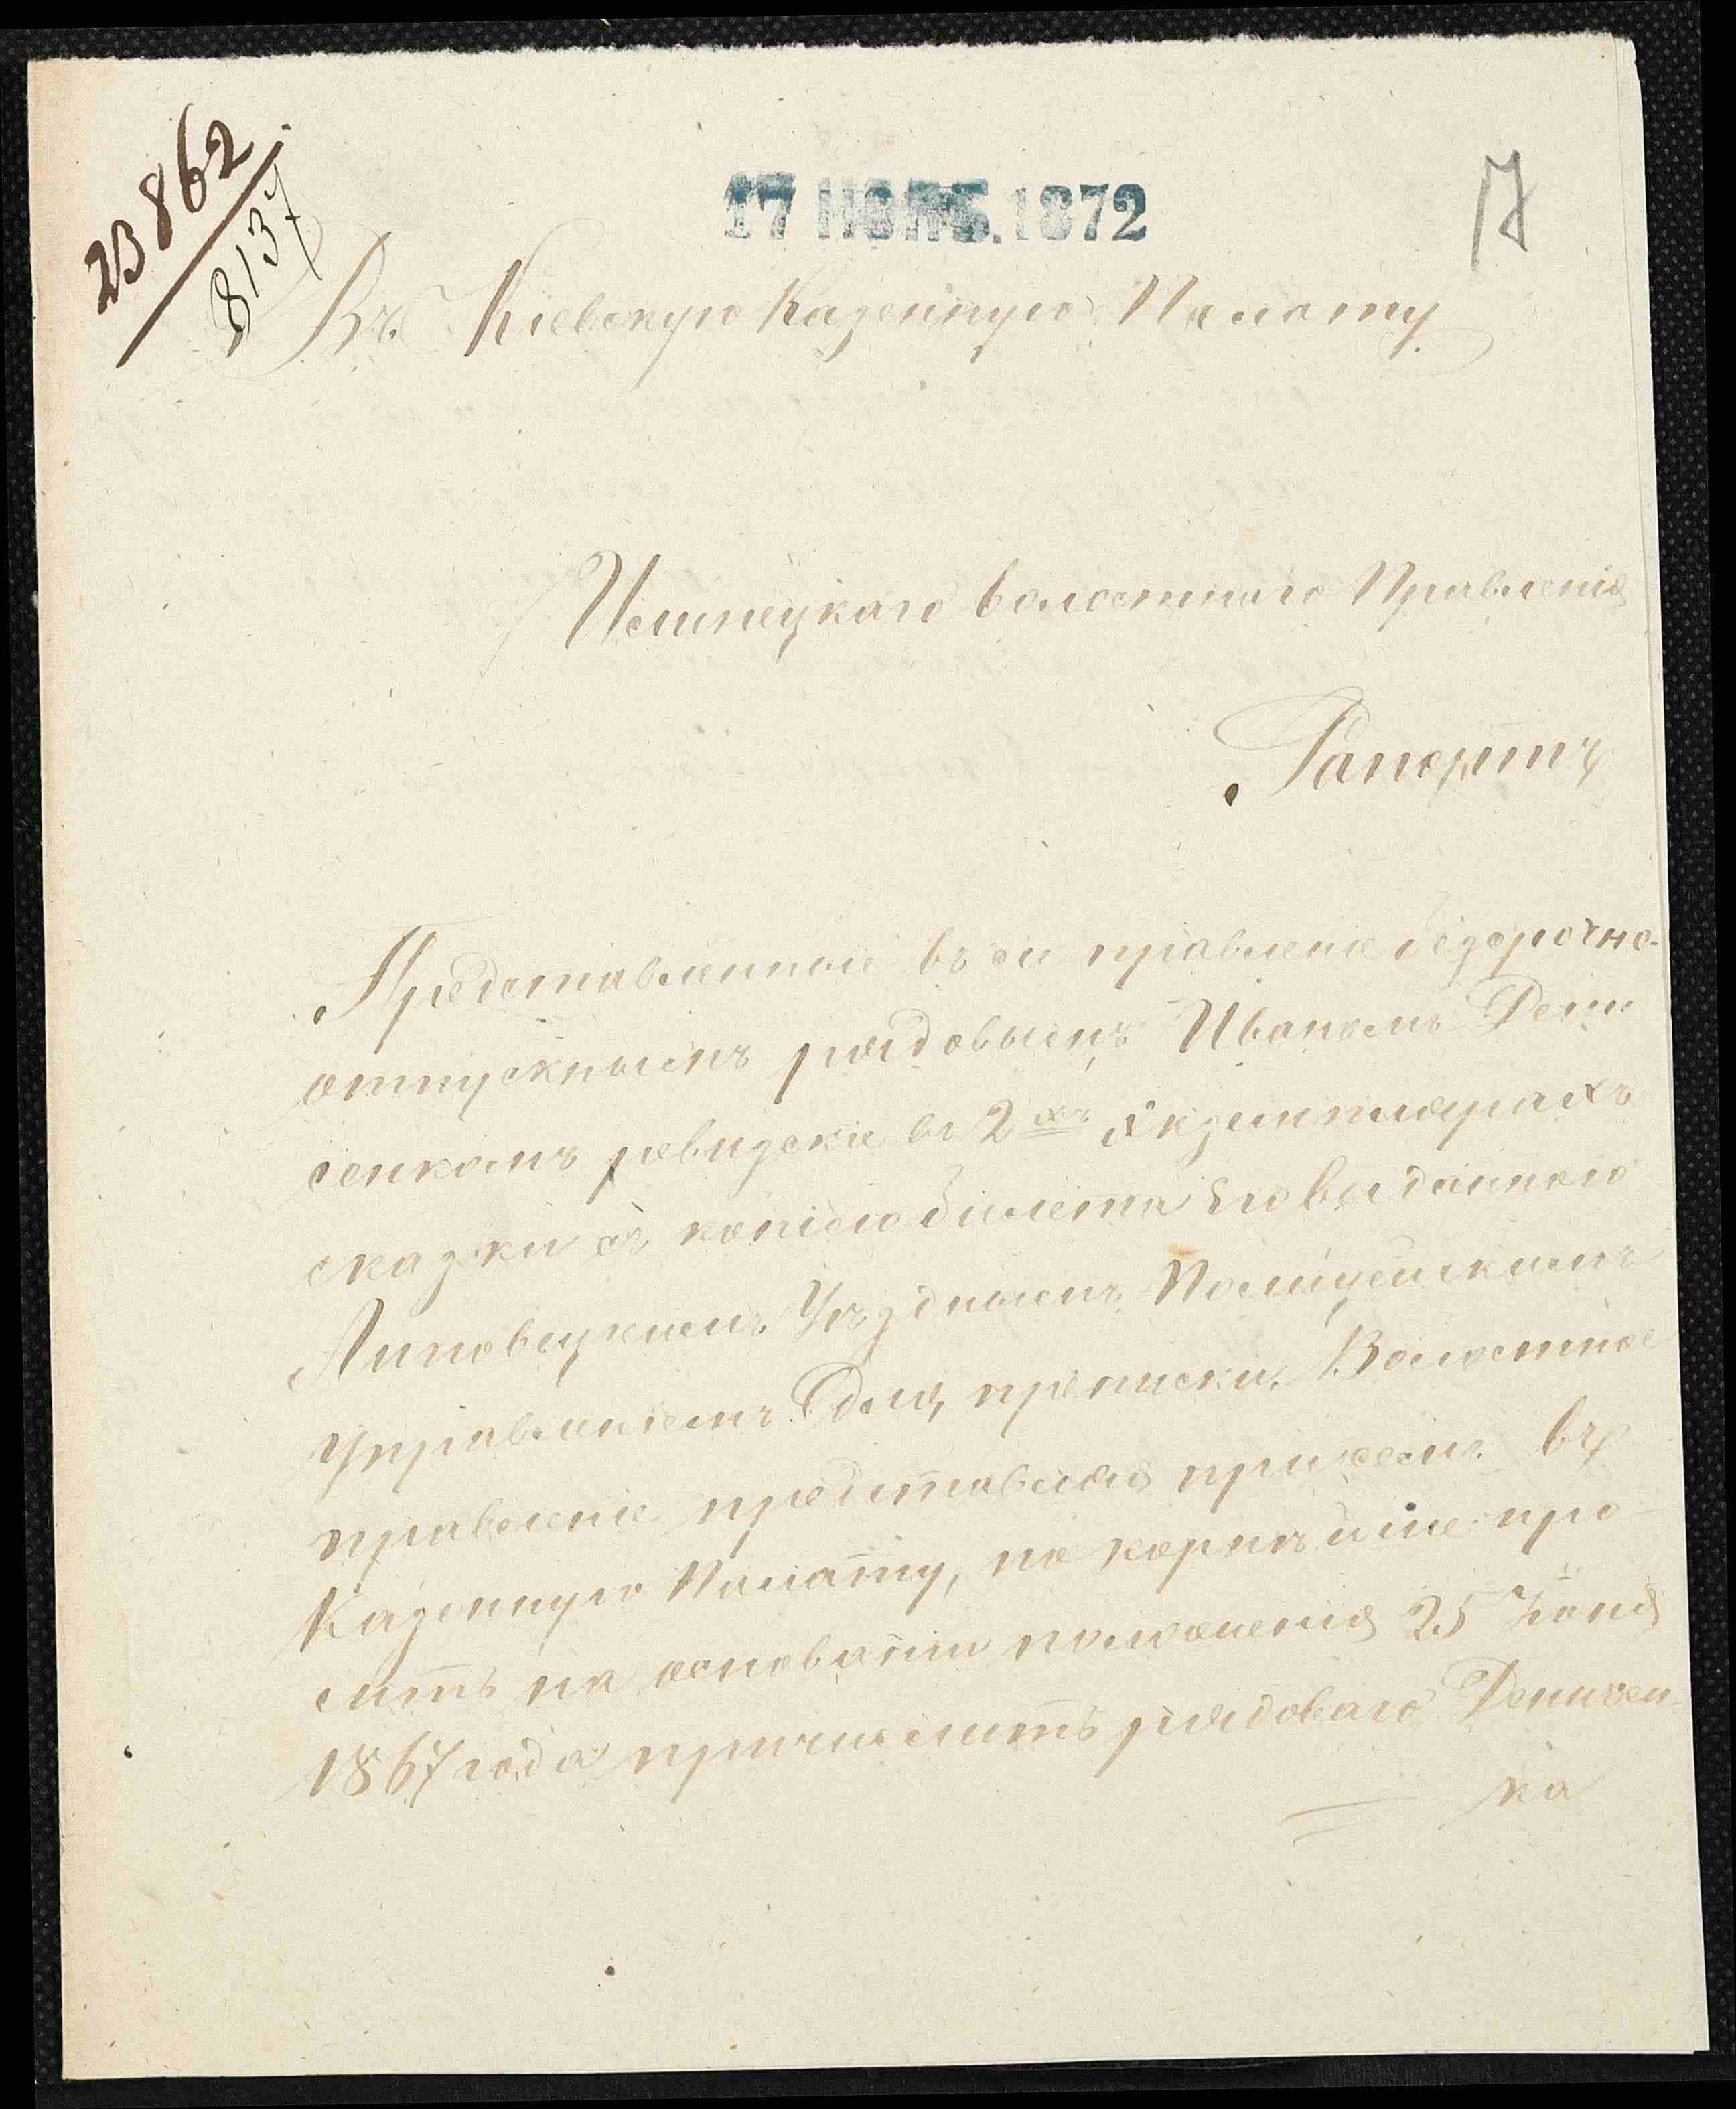 23862
8137
17 НОЯБ.1872
17
Въ Кіевскую Казенную Палату
волостнаго Правленія
Рапортъ
Представленныи въ сіи правленіе безсрочно-
отпускнымъ рядовымъ Иваномъ Дени
сенкомъ ревизскіе въ 2хъ Экземплярахъ
сказки съ копіею билета Его выданного
Липовецкимъ Уѣзднымъ Полицейскимъ
Управленіемъ для, прениски. Волостное
правленіе представляя при семъ въ
Казенную Палату, по корнѣише про-
ситъ на основаніи положенія 25 Іюня
1867 года причислить рядоваго Денисен
ка